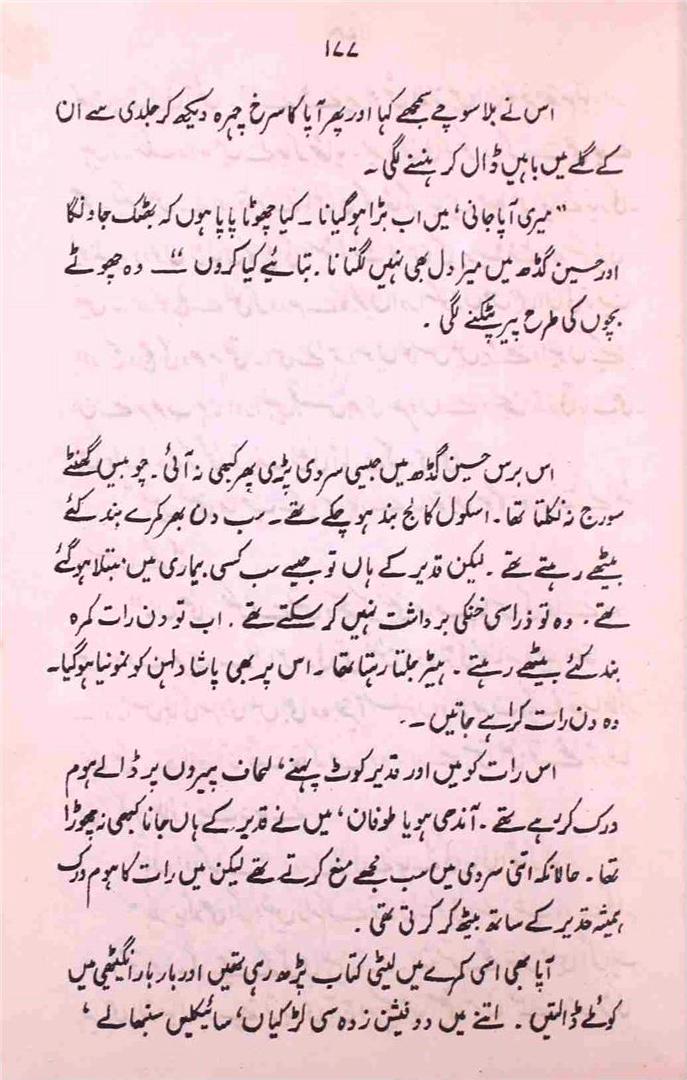 ۱۷۷
اس نے بلا سوچے سمجھے کہا اور پھر آپا کا سرخ چہرہ دیکھ کر جلدی سے ان
کے گلے میں باہیں ڈال کر ہنسنے لگی ۔
"میری آپا جانی، میں اب بڑا ہو گیا نا ۔ کیا چھوٹا پاپا ہوں کہ بھٹک جاونگا
اور حسین گڈھ میں میرا دل بھی نہیں لگتا نا ۔ بتائیے کیا کروں" — وہ چھوٹے
بچوں کی طرح پیر پٹکنے لگی ۔
اس برس حسین گڈھ میں جیسی سردی پڑی پھر کبھی نہ آئی ۔ چوبیس گھنٹے
سورج نہ نکلتا تھا ۔ اسکول کالج بند ہو چکے تھے ۔ سب دن بھر کمرے بند کئے
بیٹھے رہتے تھے ۔ لیکن قدیر کے ہاں تو جیسے سب کسی بیماری میں مبتلا ہو گئے
تھے ۔ وہ تو ذرا سی خنکی برداشت نہیں کر سکتے تھے ۔ اب تو دن رات کمرہ
بند کئے بیٹھے رہتے ۔ ہیٹر جلتا رہتا تھا ۔ اس پر بھی پاشا دلہن کو نمونیا ہو گیا ۔
وہ دن رات کراہے جاتیں ۔
اس رات کو میں اور قدیر کوٹ پہنے، لحاف پیروں پر ڈالے ہوم
ورک کر رہے تھے ۔ آندھی ہو یا طوفان، میں نے قدیر کے ہاں جانا کبھی نہ چھوڑا
تھا ۔ حالانکہ اتنی سردی میں سب مجھے منع کرتے تھے لیکن میں رات کا ہوم ورک
ہمیشہ قدیر کے ساتھ بیٹھ کر کرتی تھی ۔
آپا بھی اسی کمرے میں لیٹی کتاب پڑھ رہی تھیں اور بار بار انگیٹھی میں
کوئلے ڈالتیں ۔ اتنے میں دو فیشن زدہ سی لڑکیاں، سائیکلیں سنبھالے،